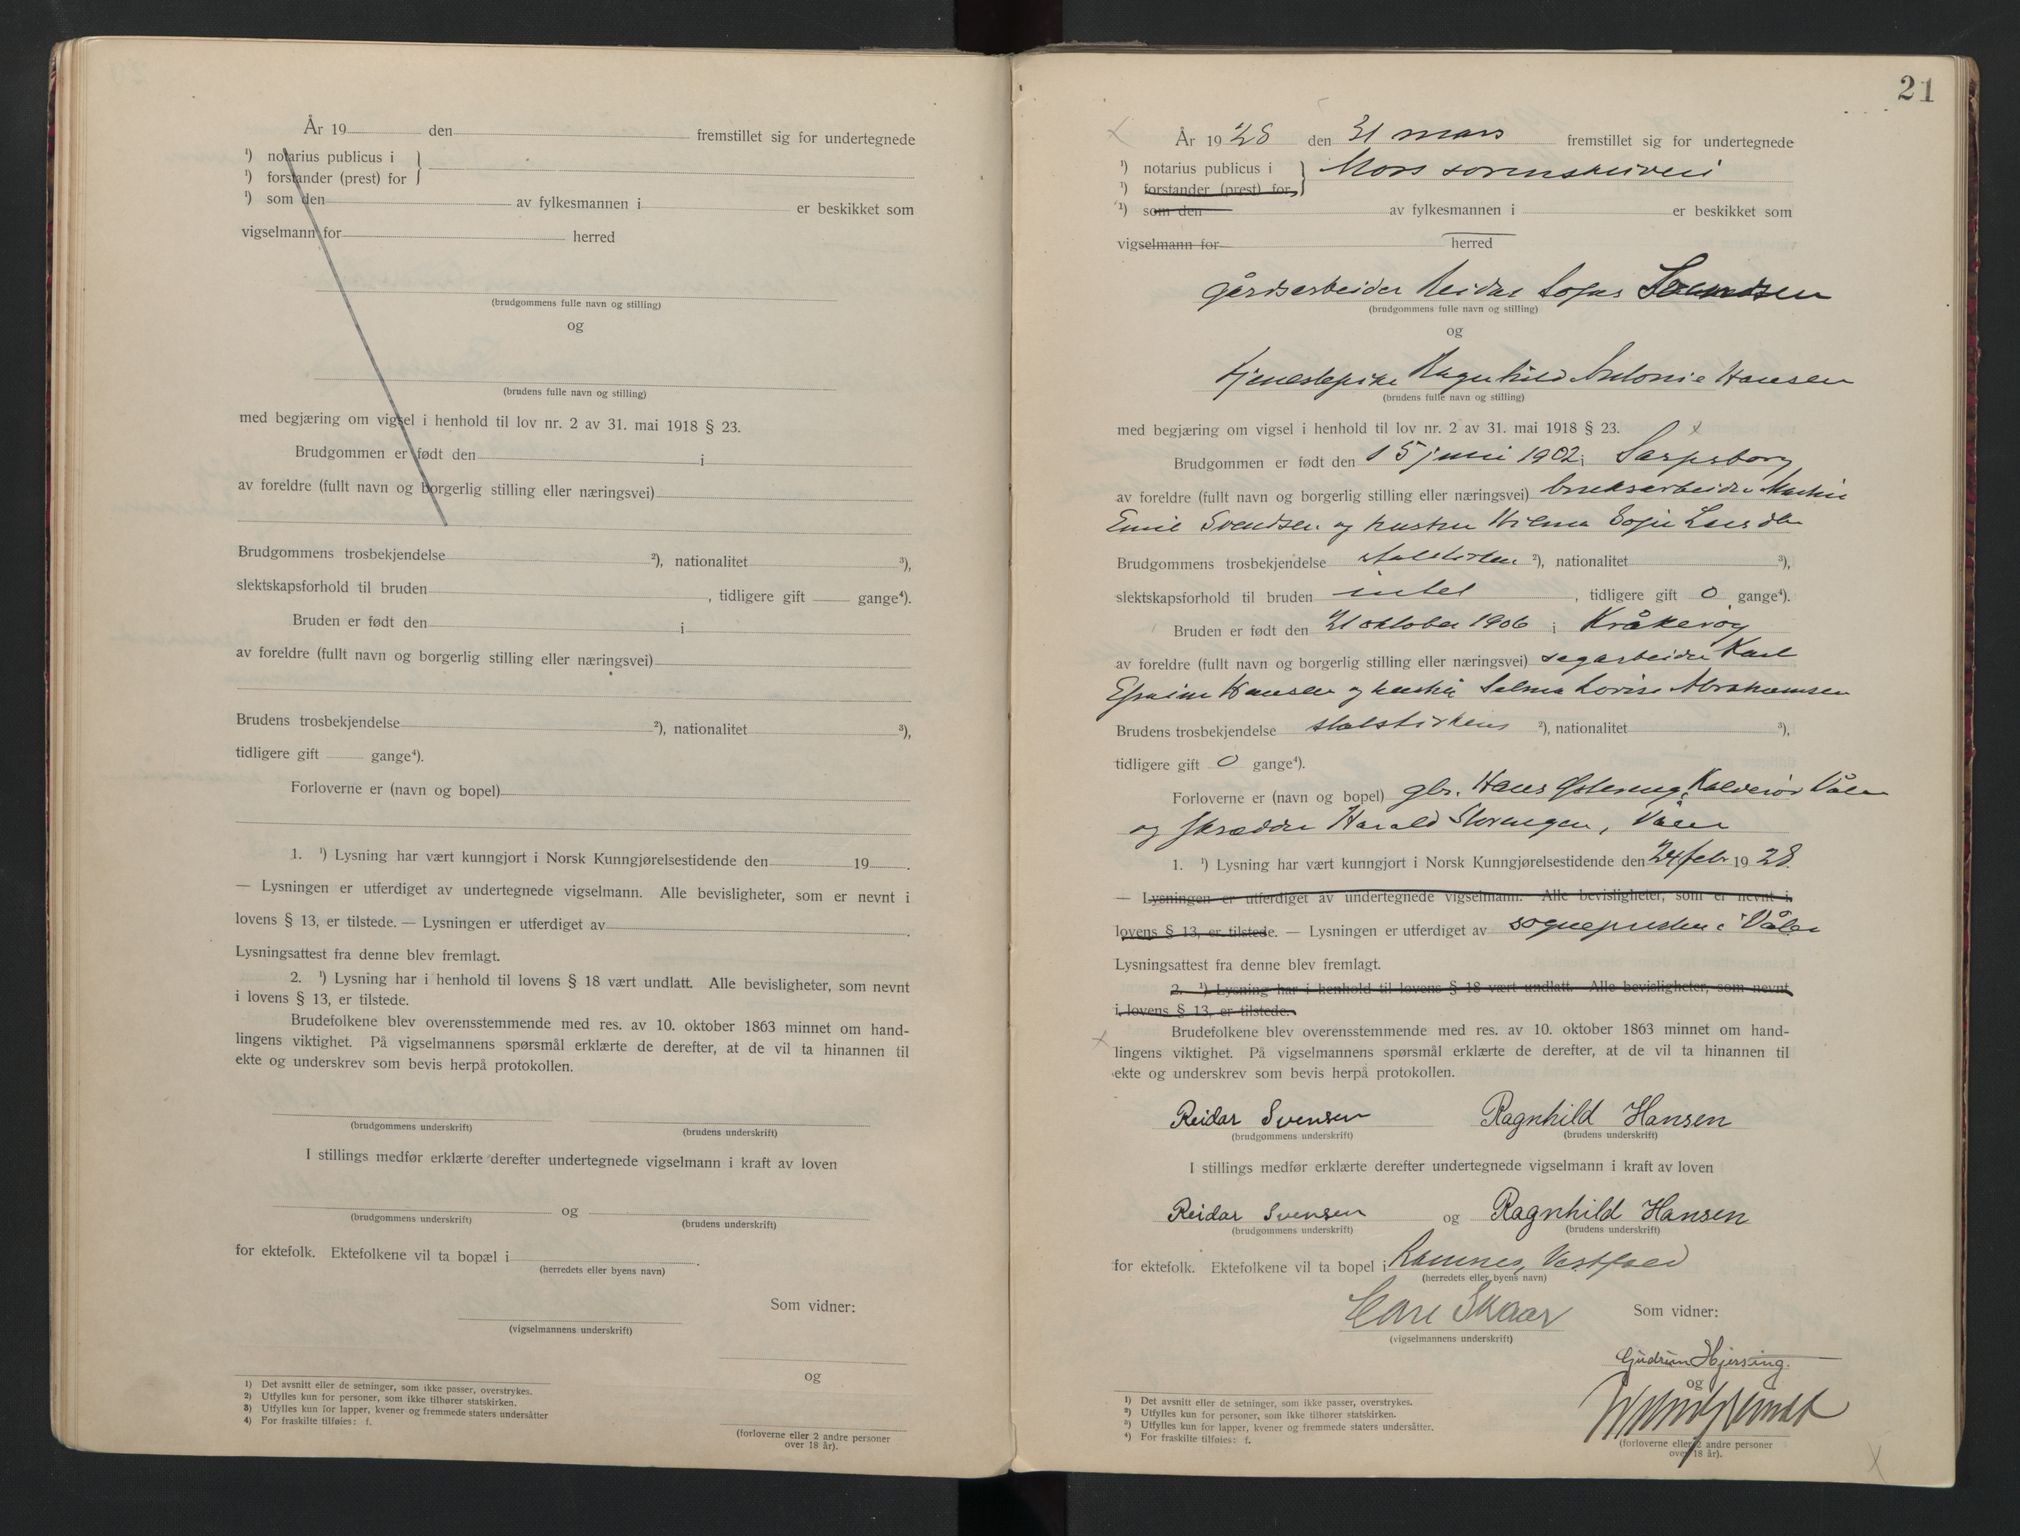 År 19 den fremstillet sig for undertegnede
¹) notarius publicus i
¹) forstander (prest) for
¹) som den av fylkesmannen i er beskikket som
vigselmann for herred
(brudgommens fulle navn og stilling)
og
(brudens fulle navn og stilling)
med begjæring om vigsel i henhold til lov nr. 2 av 31. mai 1918 § 23.
Brudgommen er født den i
av foreldre (fullt navn og borgerlig stilling eller næringsvei)
Brudgommens trosbekjendelse ²), nationalitet ³),
slektskapsforhold til bruden , tidligere gift gange⁴).
Bruden er født den i
av foreldre (fullt navn og borgerlig stilling eller næringsvei)
Brudens trosbekjendelse ²), nationalitet ³),
tidligere gift gange⁴).
Forloverne er (navn og bopel)
1. ¹) Lysning har vært kunngjort i Norsk Kunngjørelsestidende den 19 .
— Lysningen er utferdiget av undertegnede vigselmann. Alle bevisligheter, som er nevnt i
lovens § 13, er tilstede. — Lysningen er utferdiget av .
Lysningsattest fra denne blev fremlagt.
2. ¹) Lysning har i henhold til lovens § 18 vært undlatt. Alle bevisligheter, som nevnt
i lovens § 13, er tilstede.
Brudefolkene blev overensstemmende med res. av 10. oktober 1863 minnet om hand-
lingens viktighet. På vigselmannens spørsmål erklærte de derefter, at de vil ta hinannen til
ekte og underskrev som bevis herpå protokollen.
(brudgommens underskrift) (brudens underskrift)
I stillings medfør erklærte derefter undertegnede vigselmann i kraft av loven
og
(brudgommens underskrift) (brudens underskrift)
for ektefolk. Ektefolkene vil ta bopæl i .
(herredets eller byens navn)
Som vidner:
(vigselmannens underskrift)
og
1) Det avsnitt eller de setninger, som ikke passer, overstrykes.
2) Utfylles kun for personer, som ikke tilhører statskirken.
3) Utfylles kun for lapper, kvener og fremmede staters undersåtter
4) For fraskilte tilføies: f.
(forloverne eller 2 andre personer
over 18 år).
21
År 1928 den 31 mars fremstillet sig for undertegnede
¹) notarius publicus i Moss sorenskriveri
¹) forstander (prest) for
¹) som den av fylkesmannen i er beskikket som
vigselmann for herred
gårdsarbeider Reidar Svendsen
(brudgommens fulle navn og stilling)
og
tjenestepike Ragnhild Antonie Hansen
(brudens fulle navn og stilling)
med begjæring om vigsel i henhold til lov nr. 2 av 31. mai 1918 § 23.
Brudgommen er født den 15 juni 1902 i Sarpsborg
av foreldre (fullt navn og borgerlig stilling eller næringsvei) bruksarbeider Martin
Emil Svendsen og hustru Hilma Sofie
Brudgommens trosbekjendelse statskirken ²), nationalitet ³),
slektskapsforhold til bruden intet , tidligere gift 0 gange⁴).
Bruden er født den 21 oktober 1906 i Kråkerøy
av foreldre (fullt navn og borgerlig stilling eller næringsvei) sagarbeider Karl
Efraim Hansen og hustru Selma Lovise Abrahamsen
Brudens trosbekjendelse statskirkens ²), nationalitet ³),
tidligere gift 0 gange⁴).
Forloverne er (navn og bopel) gbr. Hans Østereng, Våler
og skrædder Harald Storengen, Våler
1. ¹) Lysning har vært kunngjort i Norsk Kunngjørelsestidende den 24 febr 1928.
— Lysningen er utferdiget av undertegnede vigselmann. Alle bevisligheter, som er nevnt i
lovens § 13, er tilstede. — Lysningen er utferdiget av sognepresten i Våler
Lysningsattest fra denne blev fremlagt.
2. ¹) Lysning har i henhold til lovens § 18 vært undlatt. Alle bevisligheter, som nevnt
i lovens § 13, er tilstede.
Brudefolkene blev overensstemmende med res. av 10. oktober 1863 minnet om hand-
lingens viktighet. På vigselmannens spørsmål erklærte de derefter, at de vil ta hinannen til
ekte og underskrev som bevis herpå protokollen.
Reidar Svensen Ragnhild Hansen
(brudgommens underskrift) (brudens underskrift)
I stillings medfør erklærte derefter undertegnede vigselmann i kraft av loven
Reidar Svensen og Ragnhild Hansen
(brudgommens underskrift) (brudens underskrift)
for ektefolk. Ektefolkene vil ta bopel i Ramnes, Vestfold
(herredets eller byens navn)
Carl Skaar Som vidner:
(vigselmannens underskrift)
Gudrun Hjersing.
og
¹) Det avsnitt eller de setninger, som ikke passer, overstrykes.
²) Utfylles kun for personer, som ikke tilhører statskirken.
³) Utfylles kun for lapper, kvener og fremmede staters undersåtter.
⁴) For fraskilte tilføies: f.
(forloverne eller 2 andre personer
over 18 år).